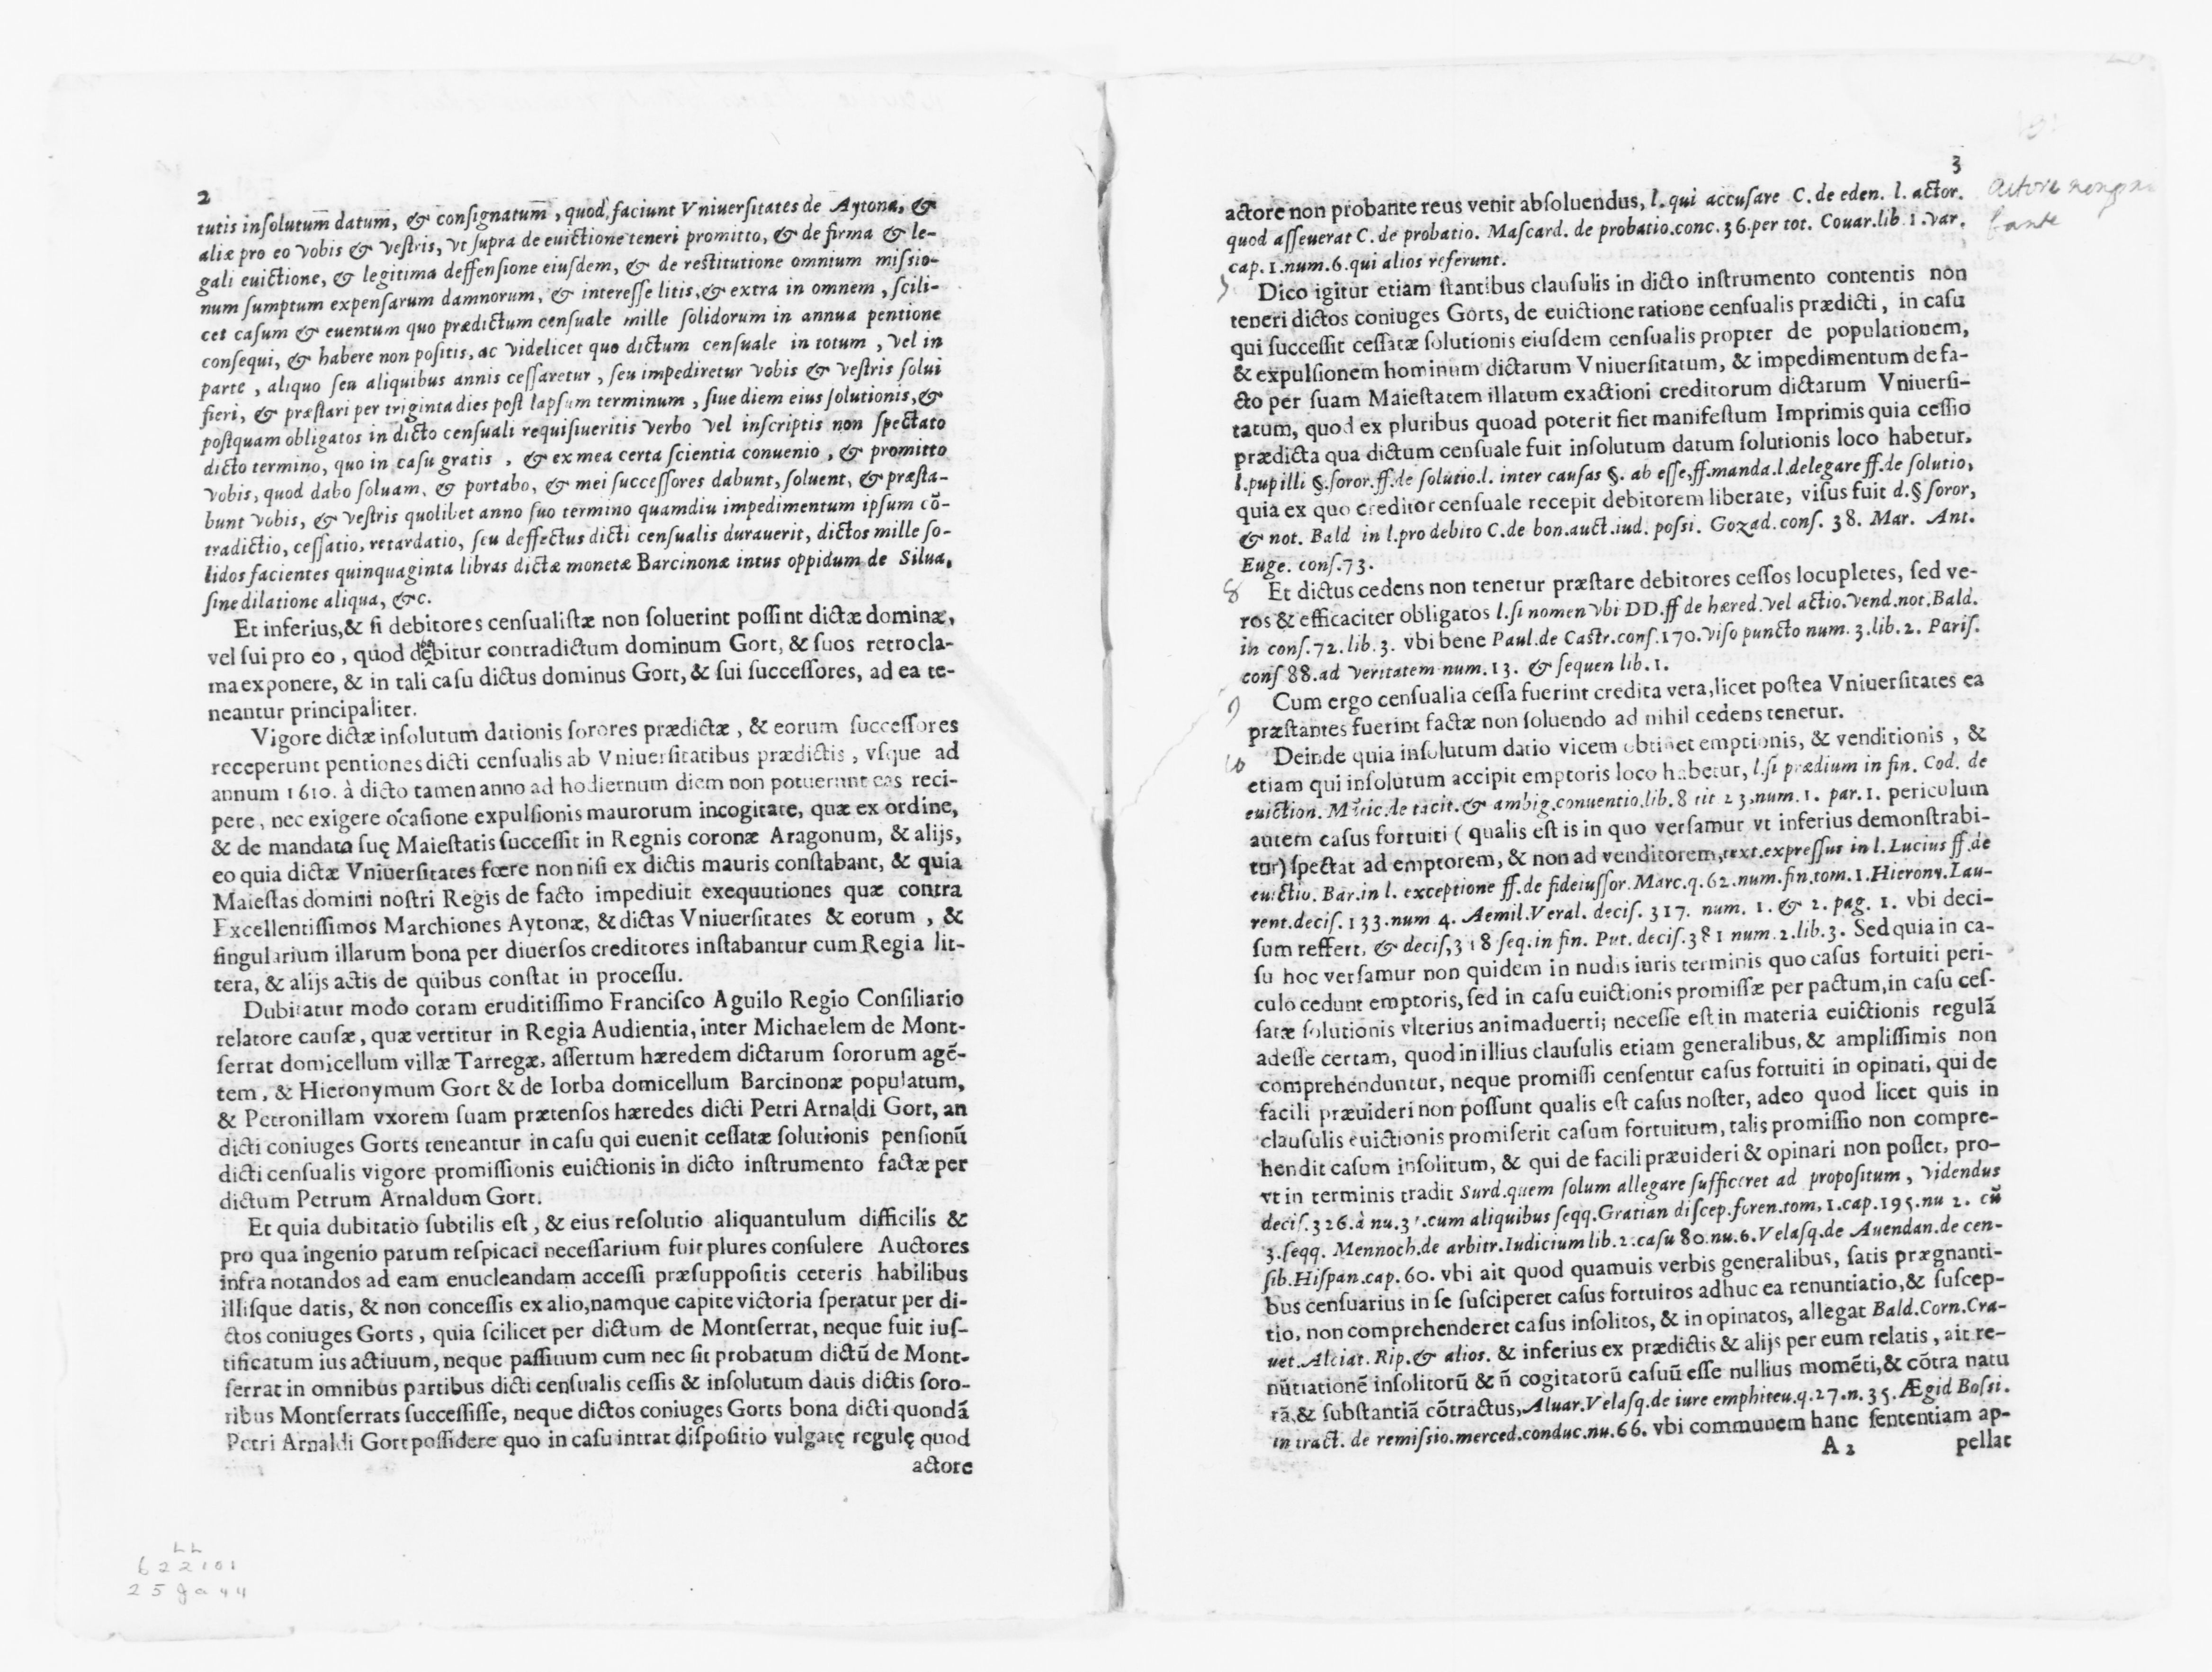 2
tutis insolutum̅ datum̅, & consignatum̅, quod faciunt Vniuersitates de Aytona, &
aliæ pro eo vobis & vestris, vt supra de euictione teneri promitto, & de firma & le-
gali euictione, & legitima deffensione eiusdem, & de restitutione omnium missio-
num sumptum expensarum damnorum, & interesse litis, & extra in omnem, scili-
cet casum & euentum quo prædictum censuale mille solidorum in annua pentione
consequi, & habere non positis, ac videlicet quo dictum censuale in totum, vel in
parte, aliquo seu aliquibus annis cessaretur, seu impediretur vobis & vestris solui
fieri, & præstari per triginta dies post lapsum terminum, siue diem eius solutionis, &
postquam obligatos in dicto censuali requisiueritis verbo vel inscriptis non spectato
dicto termino, quo in casu gratis, & ex mea certa scientia conuenio, & promitto
vobis, quod dabo soluam, & portabo, & mei successores dabunt, soluent, & præsta-
bunt vobis, & vestris quolibet anno suo termino quamdiu impedimentum ipsum cõ-
tradictio, cessatio, retardatio, seu deffectus dicti censualis durauerit, dictos mille so-
lidos facientes quinquaginta libras dictæ monetæ Barcinonæ intus oppidum de Silua,
sine dilatione aliqua, &c.
Et inferius, & si debitores censualistæ non soluerint possint dictæ dominæ,
vel sui pro eo, quod debitur contradictum dominum Gort, & suos retrocla-
ma exponere, & in tali casu dictus dominus Gort, & sui successores, ad ea te-
neantur principaliter.
Vigore dictæ insolutum dationis sorores prædictæ, & eorum successores
receperunt pentiones dicti censualis ab Vniuersitatibus prædictis, vsque ad
annum 1610. à dicto tamen anno ad hodiernum diem non potuerunt eas reci-
pere, nec exigere ócasione expulsionis maurorum incogitate, quæ ex ordine,
& de mandato suę Maiestatis successit in Regnis coronæ Aragonum, & alijs,
eo quia dictæ Vniuersitates fœre non nisi ex dictis mauris constabant, & quia
Maiestas domini nostri Regis de facto impediuit exequutiones quæ contra
Excellentissimos Marchiones Aytonæ, & dictas Vniuersitates & eorum, &
singularium illarum bona per diuersos creditores instabantur cum Regia lit-
tera, & alijs actis de quibus constat in processu.
Dubitatur modo coram eruditissimo Francisco Aguilo Regio Consiliario
relatore causæ, quæ vertitur in Regia Audientia, inter Michaelem de Mont-
serrat domicellum villæ Tarregæ, assertum hæredem dictarum sororum agẽ-
tem, & Hieronymum Gort & de Iorba domicellum Barcinonæ populatum,
& Petronillam vxorem suam prætensos hæredes dicti Petri Arnaldi Gort, an
dicti coniuges Gorts teneantur in casu qui euenit cessatæ solutionis pensionũ
dicti censualis vigore promissionis euictionis in dicto instrumento factæ per
dictum Petrum Arnaldum Gort.
Et quia dubitatio subtilis est, & eius resolutio aliquantulum difficilis &
pro qua ingenio parum respicaci necessarium fuit plures consulere Auctores
infra notandos ad eam enucleandam accessi præsuppositis ceteris habilibus
illisque datis, & non concessis ex alio, namque capite victoria speratur per di-
ctos coniuges Gorts, quia scilicet per dictum de Montserrat, neque fuit ius-
tificatum ius actiuum, neque passiuum cum nec sit probatum dictũ de Mont-
serrat in omnibus partibus dicti censualis cessis & insolutum datis dictis soro-
ribus Montserrats successisse, neque dictos coniuges Gorts bona dicti quondã
Petri Arnaldi Gort possidere quo in casu intrat dispositio vulgatę regulę quod
actore
LL
622101
25 ja 44
3
actore non probante reus venit absoluendus, l. qui accusare C. de eden. l. actor.
quod asseuerat C. de probatio. Mascard. de probatio. conc. 36. per tot. Couar. lib. 1. var.
cap. 1. num. 6. qui alios referunt.
Dico igitur etiam stantibus clausulis in dicto instrumento contentis non
teneri dictos coniuges Gorts, de euictione ratione censualis prædicti, in casu
qui successit cessatæ solutionis eiusdem censualis propter de populationem,
& expulsionem hominum dictarum Vniuersitatum, & impedimentum de fa-
cto per suam Maiestatem illatum exactioni creditorum dictarum Vniuersi-
tatum, quod ex pluribus quoad poterit fiet manifestum Imprimis quia cessio
prædicta qua dictum censuale fuit insolutum datum solutionis loco habetur,
l. pupilli §. soror. ff. de solutio. l. inter causas §. ab esse, ff. manda. l. delegare ff. de solutio,
quia ex quo creditor censuale recepit debitorem liberate, visus fuit d. § soror,
& not. Bald in l. pro debito C. de bon. auct. iud. possi. Gozad. cons. 38. Mar. Ant.
Euge. cons. 73.
8 Et dictus cedens non tenetur præstare debitores cessos locupletes, sed ve-
ros & efficaciter obligatos l. si nomen vbi DD. ff de hæred. vel actio. vend. not. Bald.
in cons. 72. lib. 3. vbi bene Paul. de Castr. cons. 170. viso puncto num. 3. lib. 2. Paris.
cons 88. ad veritatem num. 13. & sequen lib. 1.
9 Cum ergo censualia cessa fuerint credita vera, licet postea Vniuersitates ea
præstantes fuerint factæ non soluendo ad nihil cedens tenetur.
10 Deinde quia insolutum datio vicem obtinet emptionis, & venditionis, &
etiam qui insolutum accipit emptoris loco habetur, l. si prædium in fin. Cod. de
euiction. Mãtic. de tacit. & ambig. conuentio. lib. 8 tit 23. num. 1. par. 1. periculum
autem casus fortuiti ( qualis est is in quo versamur vt inferius demonstrabi-
tur) spectat ad emptorem, & non ad venditorem, text. expressus in l. Lucius ff. de
euictio. Bar. in l. exceptione ff. de fideiussor. Marc. q. 62. num. fin. tom. 1. Hierony. Lau-
rent. decis. 133. num 4. Aemil. Veral. decis. 317. num. 1. & 2. pag. 1. vbi deci-
sum reffert, & decis, 318 seq. in fin. Put. decis. 381 num. 2. lib. 3. Sed quia in ca-
su hoc versamur non quidem in nudis iuris terminis quo casus fortuiti peri-
culo cedunt emptoris, sed in casu euictionis promissæ per pactum, in casu ces-
satæ solutionis vlterius animaduertij necesse est in materia euictionis regulã
adesse certam, quod in illius clausulis etiam generalibus, & amplissimis non
comprehenduntur, neque promissi censentur casus fortuiti in opinati, qui de
facili præuideri non possunt qualis est casus noster, adeo quod licet quis in
clausulis euictionis promiserit casum fortuitum, talis promissio non compre-
hendit casum insolitum, & qui de facili præuideri & opinari non posset, pro-
vt in terminis tradit Surd. quem solum allegare sufficeret ad propositum, videndus
decis. 326. à nu. 31. cum aliquibus seqq. Gratian discep. foren. tom, 1. cap. 195. nu 2. cũ
3. seqq. Mennoch. de arbitr. Iudicium lib. 2. casu 80. nu. 6. Velasq. de Auendan. de cen-
sib. Hispan. cap. 60. vbi ait quod quamuis verbis generalibus, satis prægnanti-
bus censuarius in se susciperet casus fortuitos adhuc ea renuntiatio, & suscep-
tio, non comprehenderet casus insolitos, & in opinatos, allegat Bald. Corn. Cra-
uet. Alciat. Rip. & alios. & inferius ex prædictis & alijs per eum relatis, ait re-
nũtiationẽ insolitorũ & ñ cogitatorũ casuũ esse nullius momẽti, & cõtra natu
rã, & substantiã cõtractus, Aluar. Velasq. de iure emphiteu. q. 27. n. 35. Ægid Bossi.
in tract. de remissio. merced. conduc. nu. 66. vbi communem hanc sententiam ap-
A 2 pellat